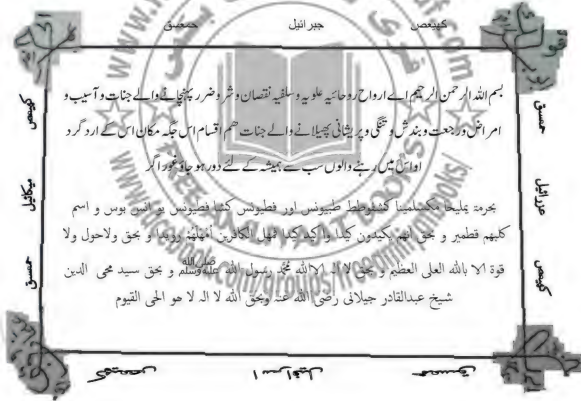 کهیعص جبرائیل حمعسق
بسم اللہ الرحمن الرحیم اے ارواح روحانیہ علویہ وسفلیہ نقصان وشر وضرر پہنچانے والے جنات و آسیب و
امراض ورجعت وبندش و تنگی و پریشانی پھیلانے والے جنات ھم اقسام اس جگہ مکان اس کے ارد گرد
اواس میں رہنے والوں سب سے ہمیشہ کے لئے دور ہو جاؤ فورا گر
بحرمة یملیخا مکسلمینا کشفوطط طبیونس اور فطیونس کشا فطیونس یو انس بوس و اسم
کلبهم قطمیر و بحق انهم یکیدون کیدا واکید کیدا فمهل الکافرین أمهلهم رویدا و بحق ولاحول ولا
قوة الا بالله العلی العظیم و بحق لا اله الاالله محمد رسول الله صلى الله عليه وسلم و بحق سید محی الدین
شیخ عبدالقادر جیلانی رضی الله عنه وبحق الله لا اله لا هو الحی القیوم
حمسق
عزرائیل
کهیعص
کهیعص
میکائیل
حمسق
کهیعص اسرافیل حمسق